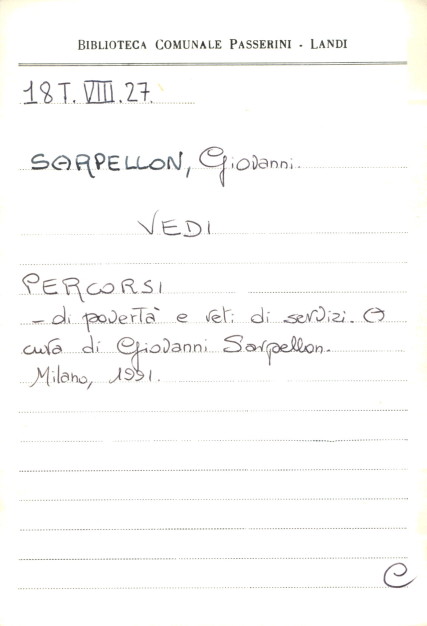 BIBLIOTECA COMUNALE PASSERINI - LANDI
18 T. VIII. 27.
SARPELLON, Giovanni.
VEDI
PERCORSI
- di povertà e reti di servizi. A
cura di Giovanni Sarpellon.
Milano, 1991.
C